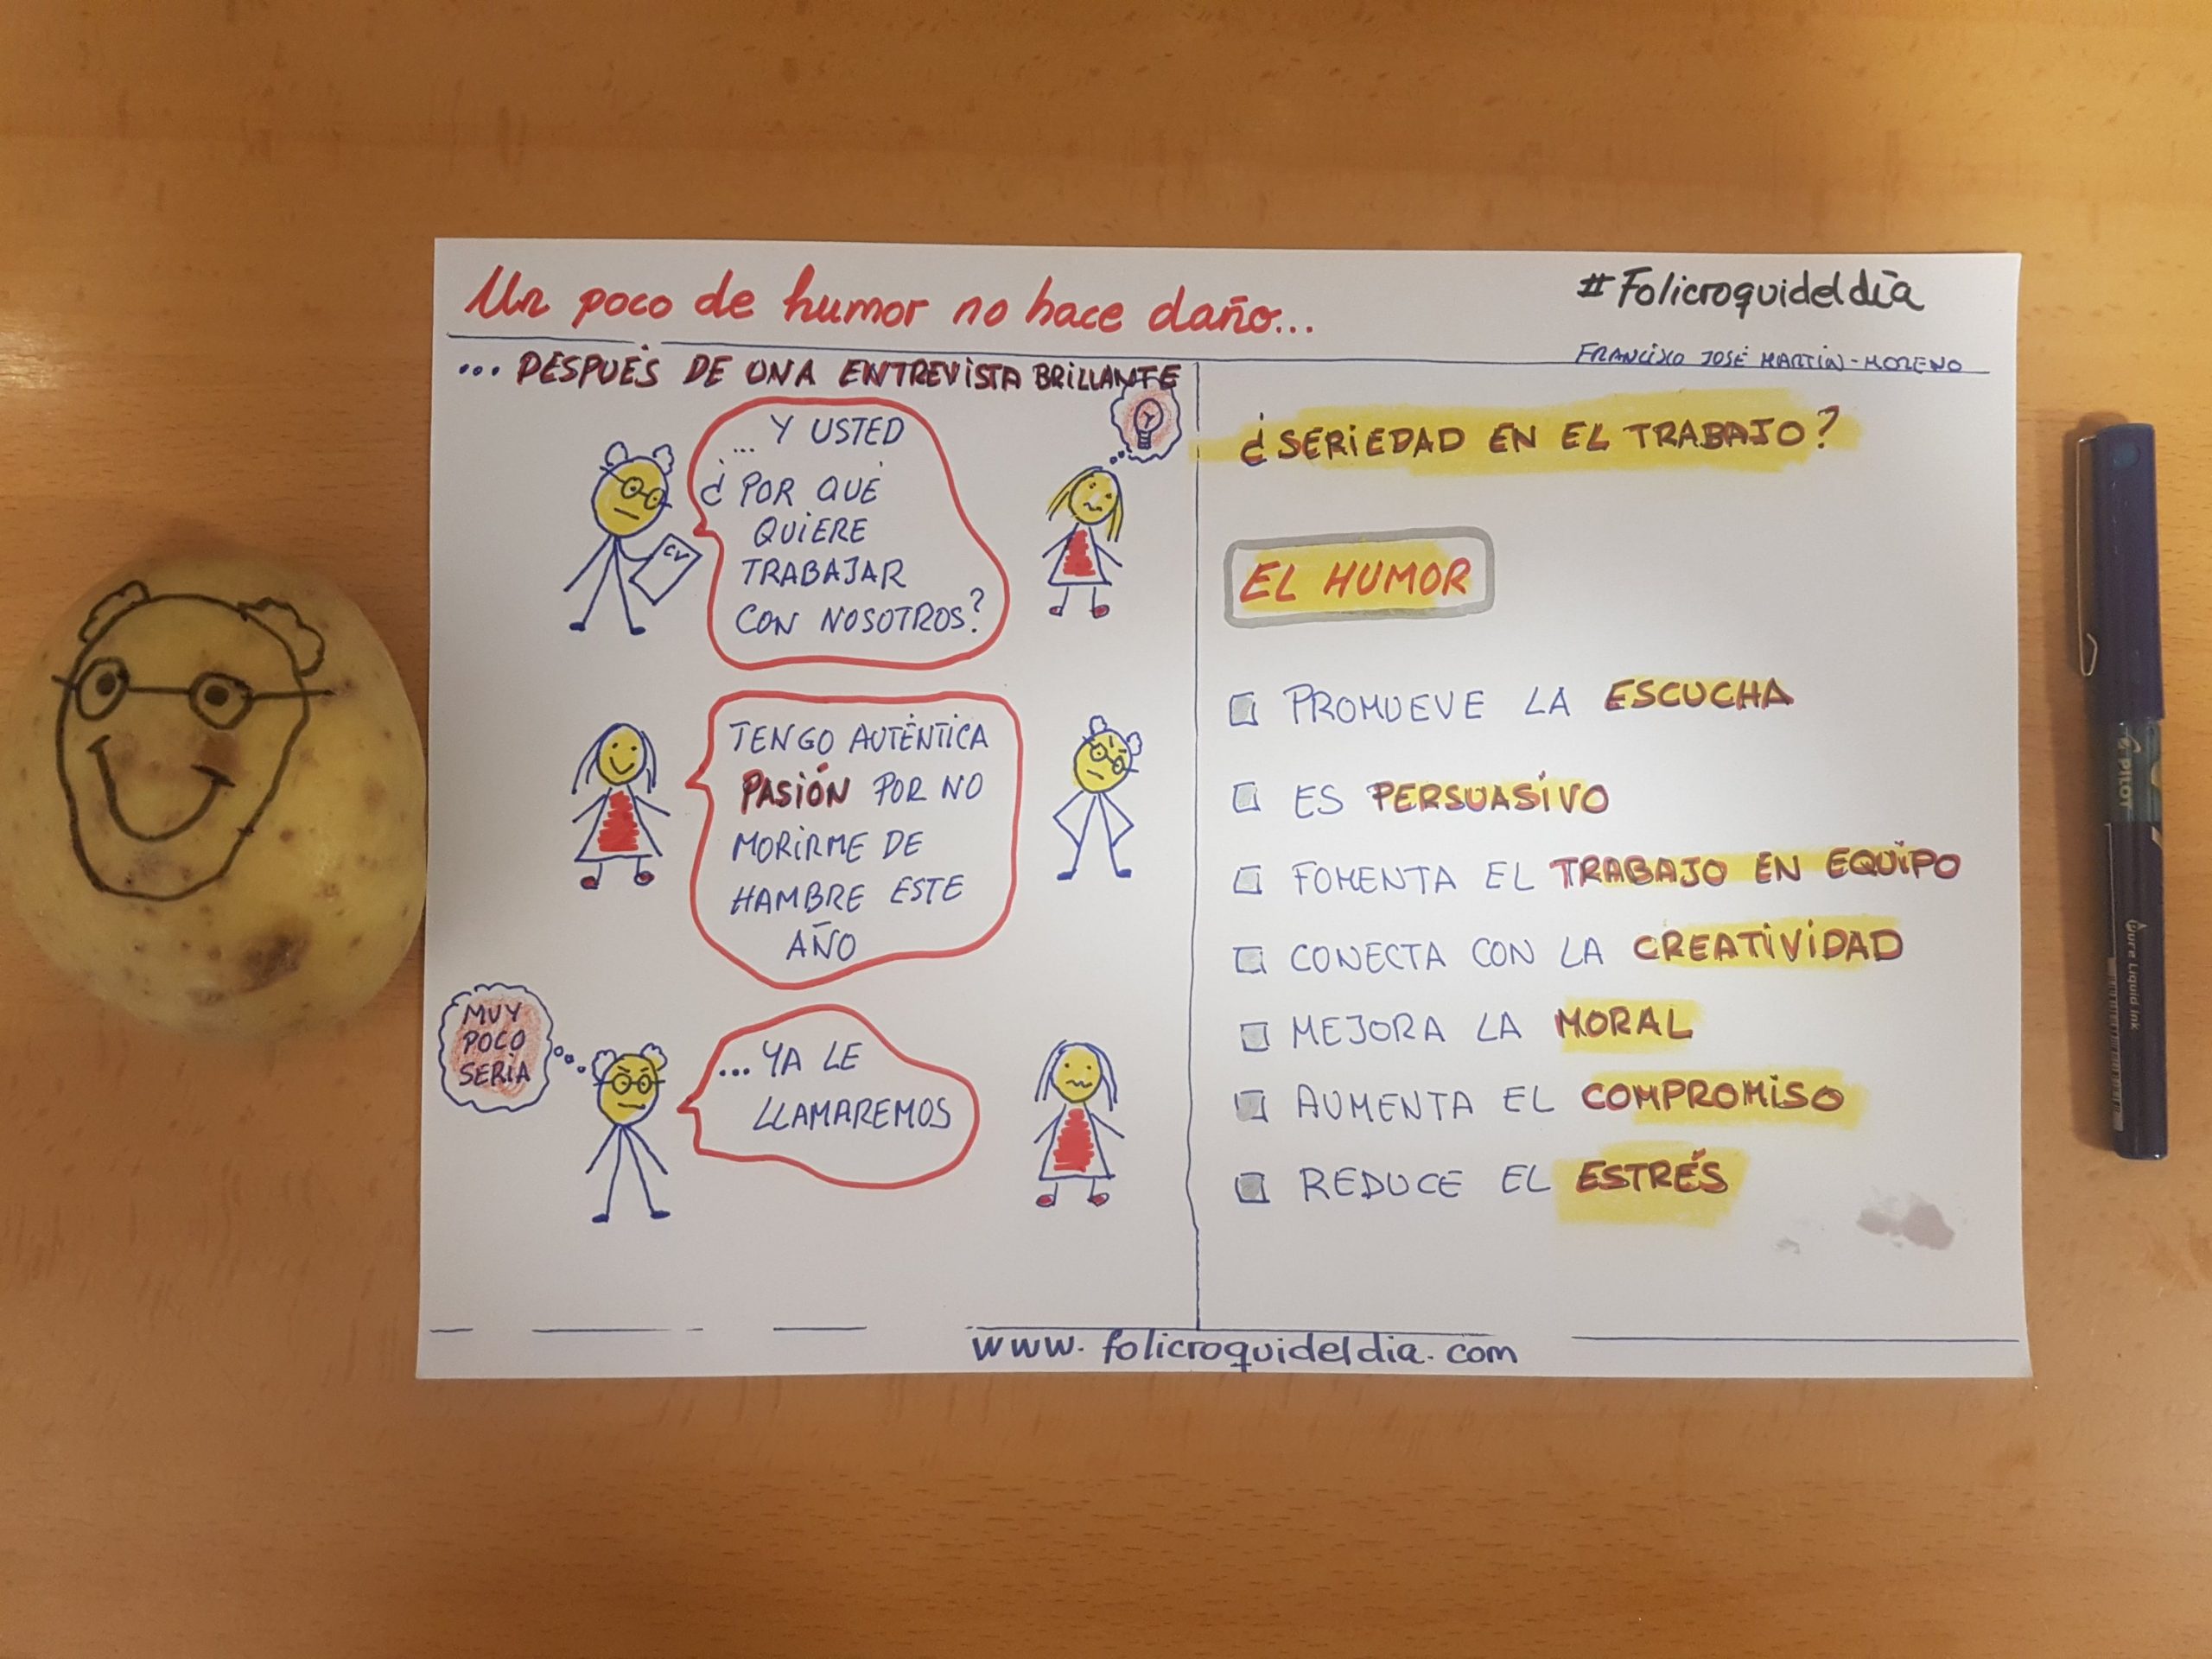 Un poco de humor no hace daño...
#Folicroquideldía
FRANCISCO JOSÉ MARTÍN-MORENO
... DESPUÉS DE UNA ENTREVISTA BRILLANTE
... Y USTED
¿POR QUÉ
QUIERE
TRABAJAR
CON NOSOTROS?
CV
TENGO AUTÉNTICA
PASIÓN POR NO
MORIRME DE
HAMBRE ESTE
AÑO
MUY
POCO
SERIA
... YA LE
LLAMAREMOS
¿SERIEDAD EN EL TRABAJO?
EL HUMOR
PROMUEVE LA ESCUCHA
ES PERSUASIVO
FOMENTA EL TRABAJO EN EQUIPO
CONECTA CON LA CREATIVIDAD
MEJORA LA MORAL
AUMENTA EL COMPROMISO
REDUCE EL ESTRÉS
www.folicroquideldia.com
PILOT
Pure Liquid Ink